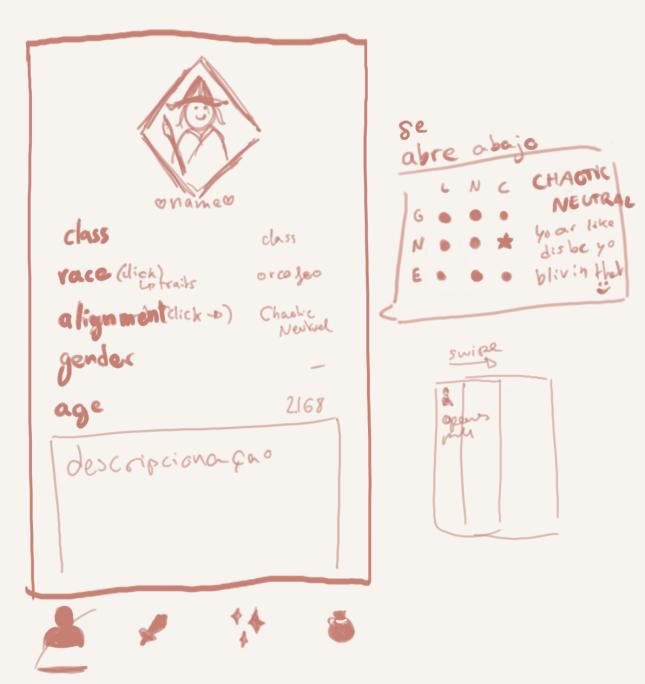 ♡name♡
class class
race (click) orco feo
↳traits
alignment (click →) Chaotic
Neutral
gender —
age 2168
descripcionaçao
se
abre abajo
L N C
G
N
E
CHAOTIC
NEUTRAL
yo ar like
dis be yo
bliv in that
swipe
opens